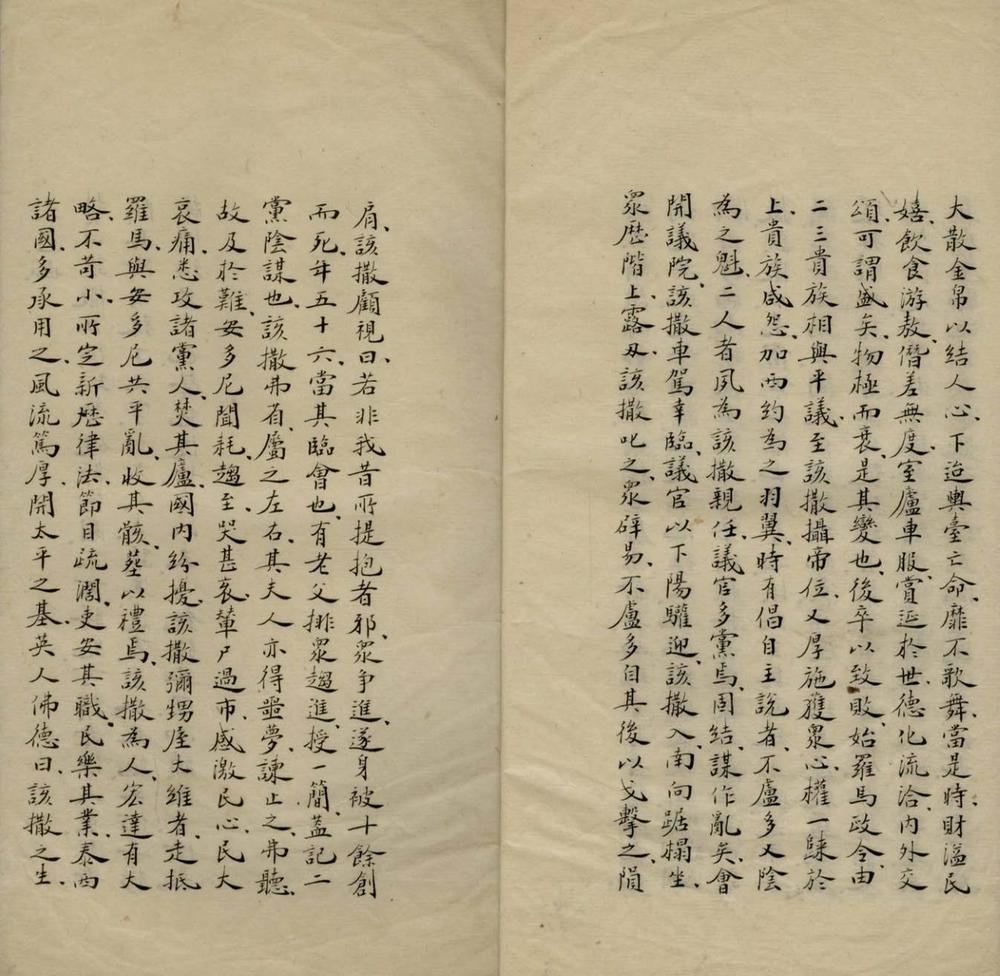 大散金帛以結人心、下迨輿臺亡命、靡不歌舞、當是時、財溢民
嬉、飲食游敖、僭差無度、室廬車服、賞延於世、德化流洽、内外交
頌、可謂盛矣、物極而衰、是其變也、後卒以致敗、始羅馬政令、由
二三貴族相與平議、至該撒攝帝位、又厚施獲衆心、權一歸於
上、貴族咸怨、加西約為之羽翼、時有倡自主說者、不盧多又陰
為之魁、二人者夙為該撒親任、議官多黨焉、固結謀作亂矣、會
開議院、該撒車駕幸臨、議官以下陽驩迎、該撒入、南向踞榻坐、
衆歷階上、露刃、該撒叱之、衆辟易、不盧多自其後以戈擊之、隕
肩、該撒顧視曰、若非我昔所提抱者邪、衆争進、遂身被十餘創
而死、年五十六、當其臨會也、有老父排衆趨進、授一簡、蓋記二
黨陰謀也、該撒弗省、屬之左右、其夫人亦得噩夢、諫止之、弗聽、
故及於難、安多尼聞耗、趨至、哭甚哀、輦尸過市、感激民心、民大
哀痛、悉攻諸黨人、焚其廬、國内紛擾、該撒彌甥屋大維者、走抵
羅馬、與安多尼共平亂、收其骸、葬以禮焉、該撒為人、宏達有大
略、不苛小、所定新歷律法、節目疏濶、吏安其職、民樂其業、泰西
諸國、多承用之、風流篤厚、開太平之基、英人佛德曰、該撒之生、